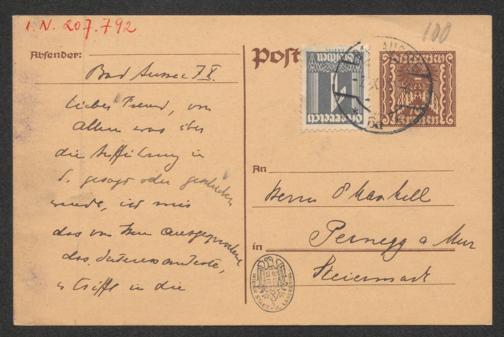 I. N. 207.792
100
Absender:
Bad Aussee 7 X.
Lieber Freund, von
allem was über
die Aufführung in
S. gesagt oder geschrieben
wurde, ist mir
das von Ihnen ausgesprochene
das Interessanteste,
es trifft in die
Post
Österreich
Österreich
Kronen
An
Herrn
in Pernegg a Mur
Steiermark